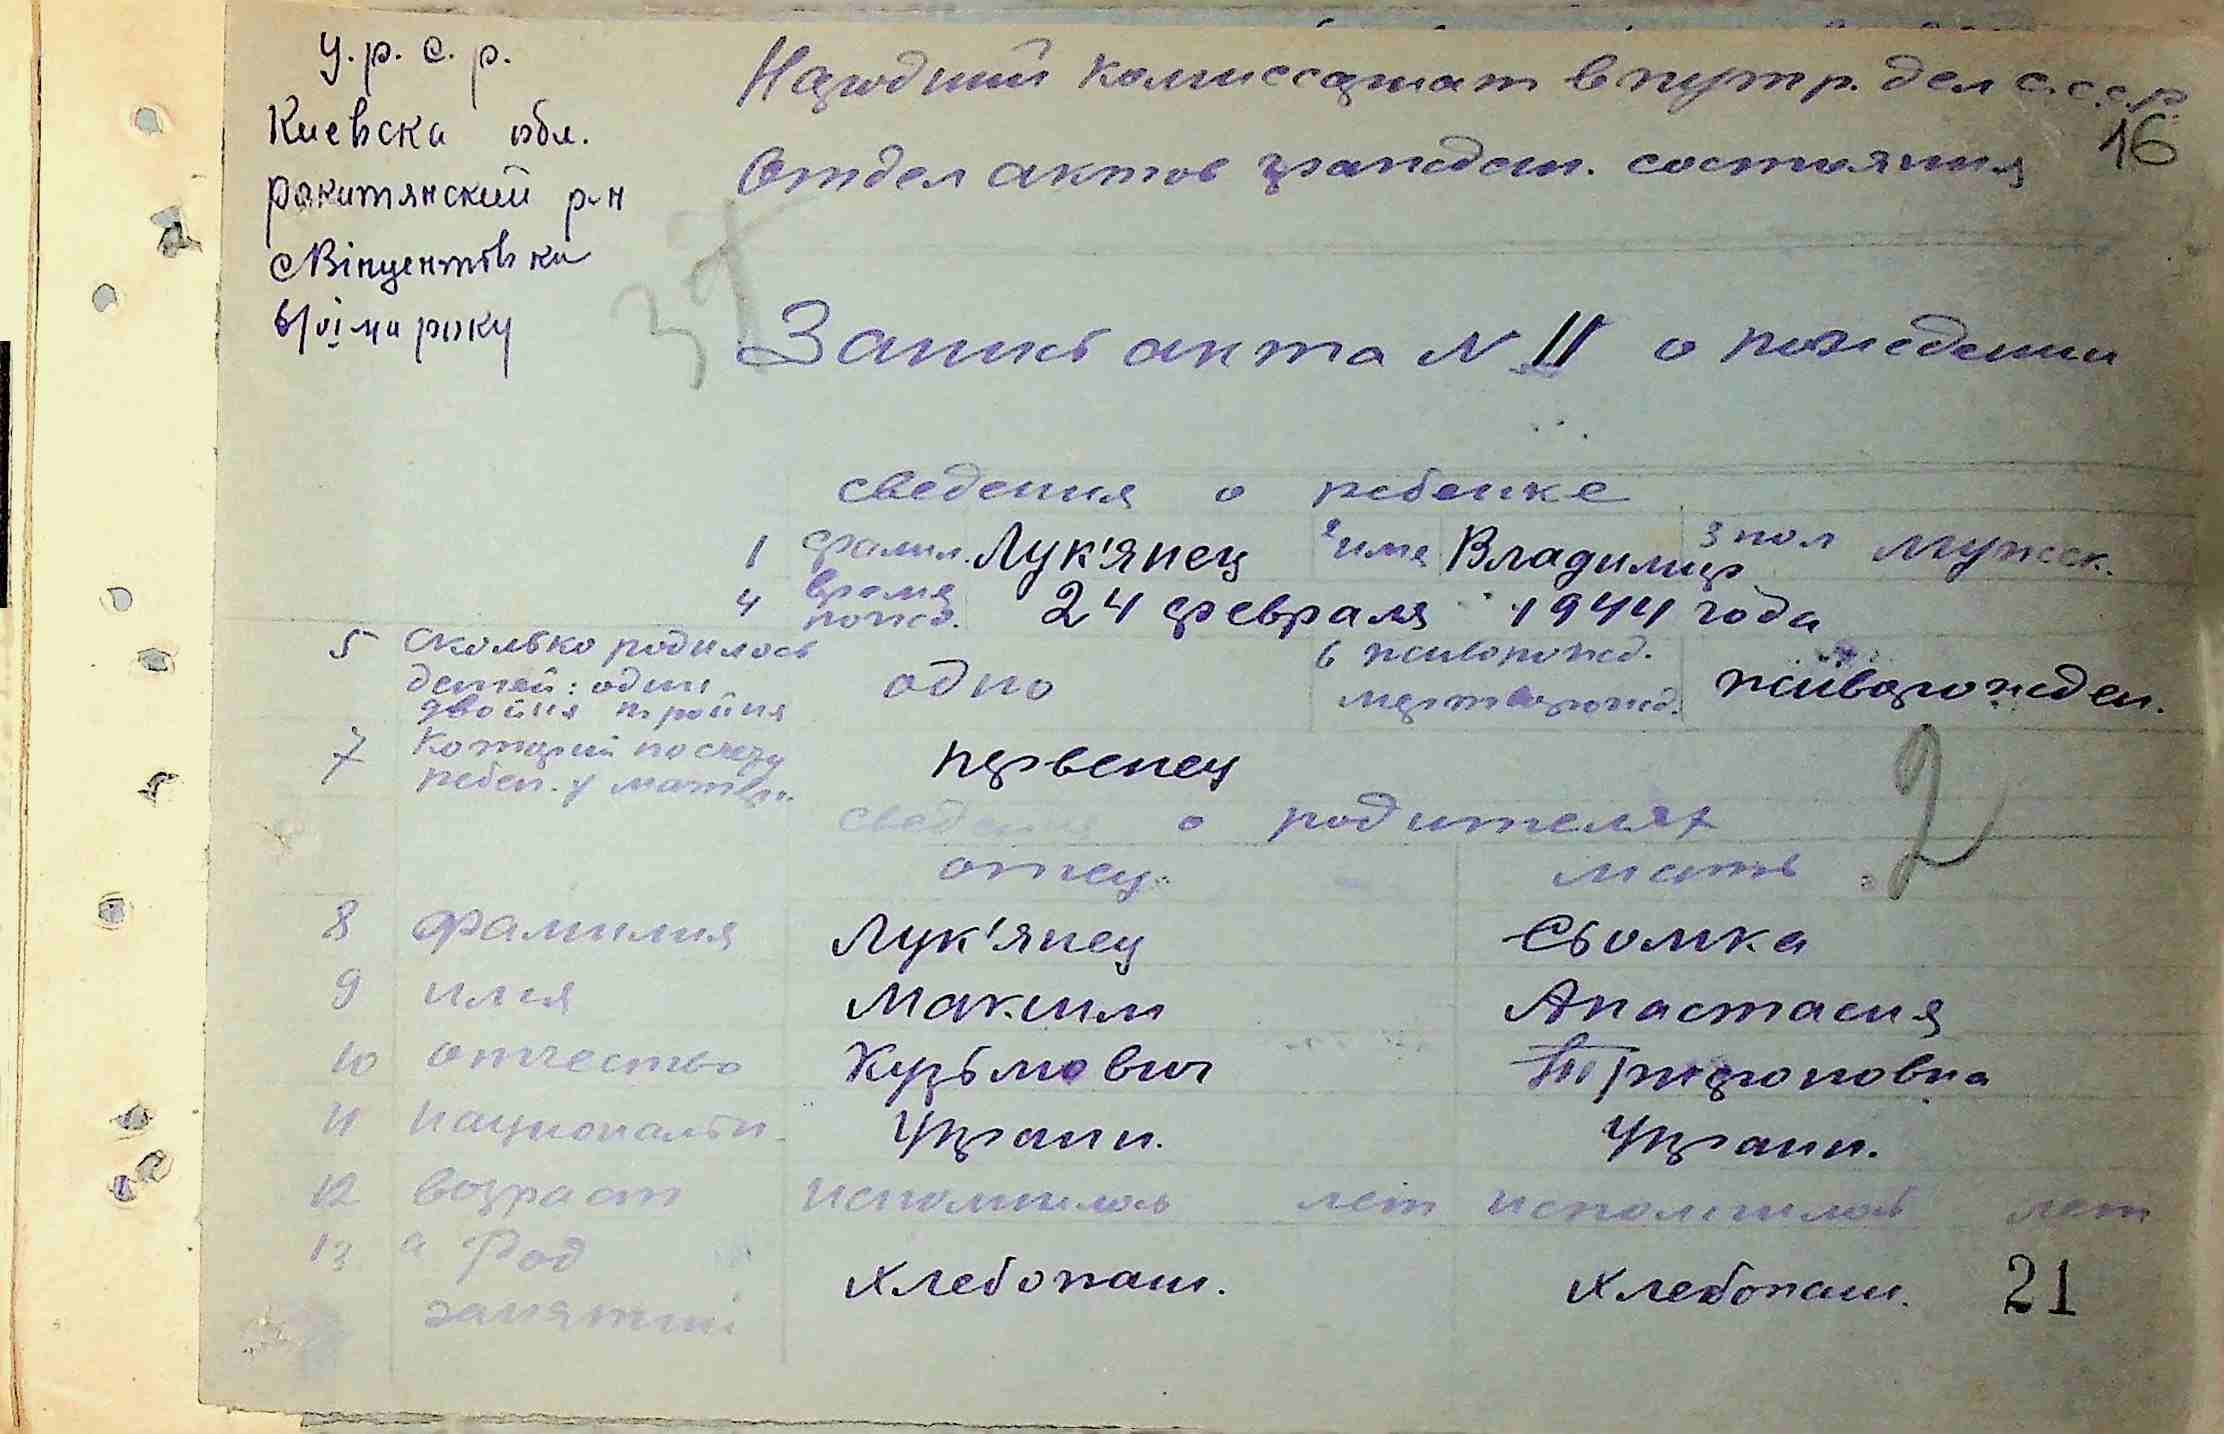 У.р.с.р.
Киевска обл.
ракитянский р-н
с Вінцентовка
6/VI на року
Народний комиссариат внутр. дел с.с.с.р
16
Отдел актов граждан. состояния
37
Запись акта N 11 о рождении
сведения о ребенке
1 фамил. Лук'янец 2 имя Владимир 3 пол мужск.
4 время рожд. 24 февраля 1944 года
5 Сколько родилось детей: один двойня тройня одно 6 живорожд. мертворожд. живорожден.
7 Которий по счету ребен. у матери. первенец
2
сведения о родителях
отец мать
8 фамилия Лук'янец Сьомка
9 имя Максим Анастасия
10 отчество Кузьмович Трифоновна
11 национальн. Украин. Украин.
12 возраст исполнилось лет исполнилось лет
13 а Род занятий хлебопаш. хлебопаш.
21